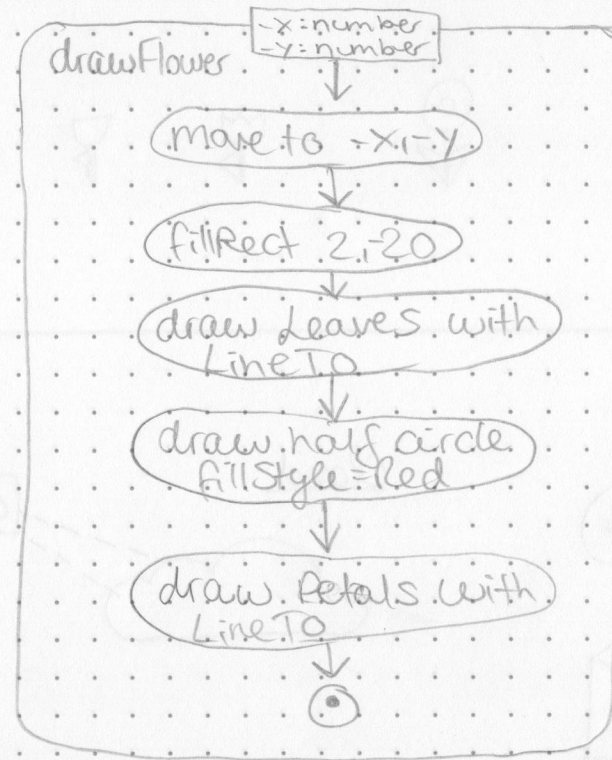 -x:number
-y:number
drawFlower
move to -x,-y
fillRect 2,-20
draw Leaves with
LineTo
draw half circle
fillStyle=Red
draw Petals with
LineTo